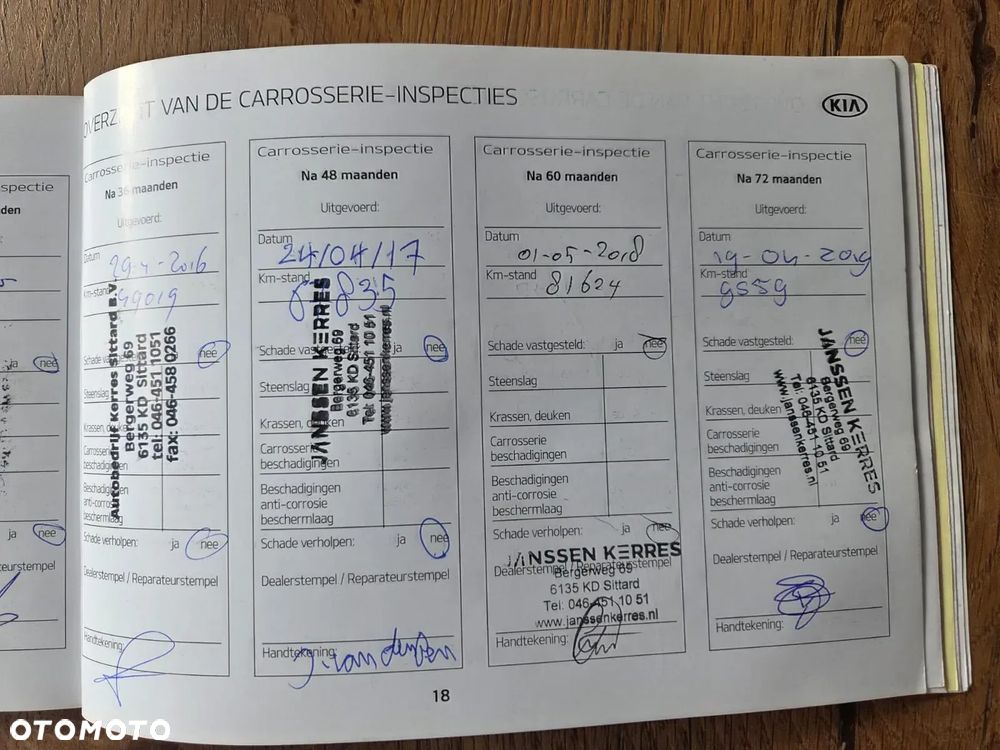 OVERZICHT VAN DE CARROSSERIE-INSPECTIES
KIA
spectie
den
ja nee
ja nee
teurstempel
Carrosserie-inspectie
Na 36 maanden
Uitgevoerd:
Datum 29-4-2016
Km-stand 49019
Schade vastgesteld: nee
Steenslag
Krassen, deuken
Carrosserie
beschadigingen
Beschadigingen
anti-corrosie
beschermlaag
Autobedrijf Kerres Sittard B.V.
Bergerweg 69
6135 KD Sittard
tel: 046-451 1051
fax: 046-458 0266
Schade verholpen: ja nee
Dealerstempel / Reparateurstempel
Handtekening:
Carrosserie-inspectie
Na 48 maanden
Uitgevoerd:
Datum
24/04/17
Km-stand 835
Schade vastgesteld: ja nee
Steenslag
Krassen, deuken
Carrosserie
beschadigingen
Beschadigingen
anti-corrosie
beschermlaag
JANSSEN KERRES
Bergerweg 69
6135 KD Sittard
Tel: 046-451 10 51
www.janssenkerres.nl
Schade verholpen: ja nee
Dealerstempel / Reparateurstempel
Handtekening:
Carrosserie-inspectie
Na 60 maanden
Uitgevoerd:
Datum 01-05-2018
Km-stand 81624
Schade vastgesteld: ja nee
Steenslag
Krassen, deuken
Carrosserie
beschadigingen
Beschadigingen
anti-corrosie
beschermlaag
Schade verholpen: ja nee
JANSSEN KERRES
Dealerstempel / Reparateurstempel
Bergerweg 69
6135 KD Sittard
Tel: 046-451 10 51
www.janssenkerres.nl
Handtekening:
Carrosserie-inspectie
Na 72 maanden
Uitgevoerd:
Datum
19-04-2019
Km-stand
9559
Schade vastgesteld: nee
Steenslag
Krassen, deuken
Carrosserie
beschadigingen
Beschadigingen
anti-corrosie
beschermlaag
JANSSEN KERRES
Bergerweg 69
6135 KD Sittard
Tel: 046-451 10 51
www.janssenkerres.nl
Schade verholpen: ja nee
Dealerstempel / Reparateurstempel
Handtekening:
18
OTOMOTO